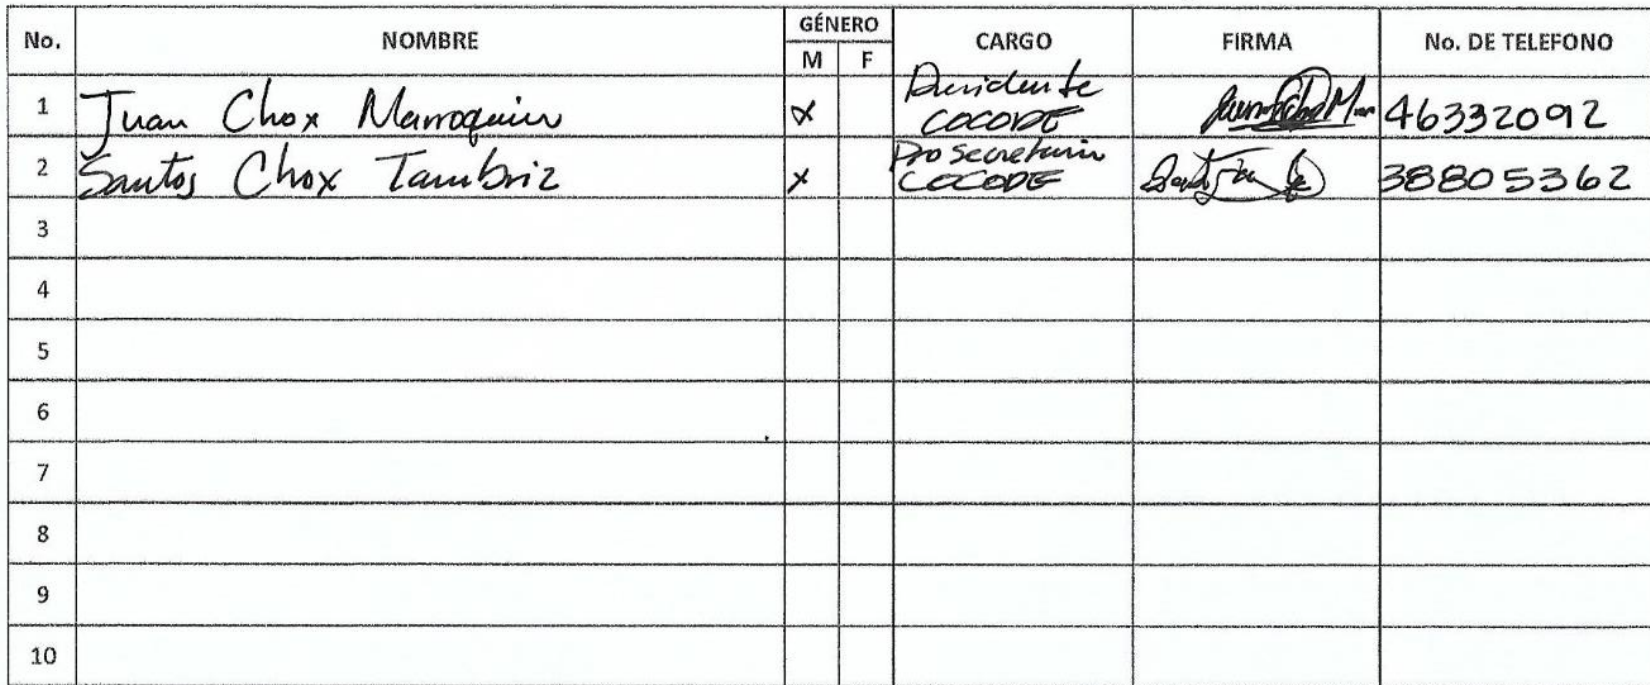 No. NOMBRE GÉNERO CARGO FIRMA No. DE TELEFONO
M F
1 Juan Chox Marroquin x Presidente COCODE 46332092
2 Santos Chox Tambriz x Pro secretario COCODE 38805362
3
4
5
6
7
8
9
10